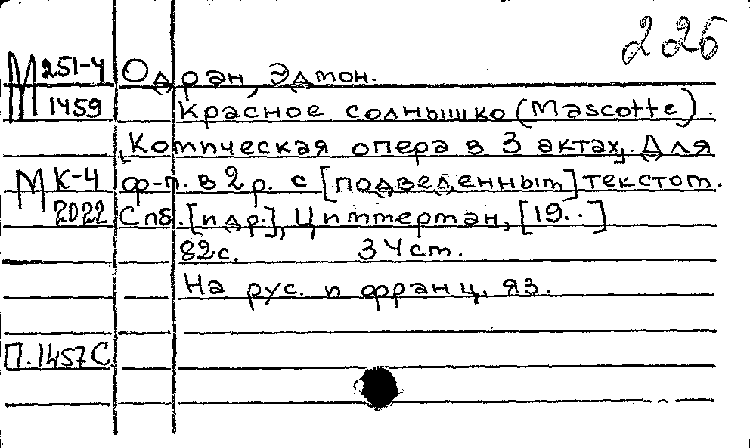 226
М 251-4
1459
Одран, Эдмон.
Красное солнышко (Mascotte).
[Комическая опера в 3 актах]. Для
М К-4
2022
ф-п. в 2 р. с [подведенным] текстом.
Спб. [и др.], Циммерман, [19..]
82 с. 34 см.
На рус. и франц. яз.
П. 1457 С